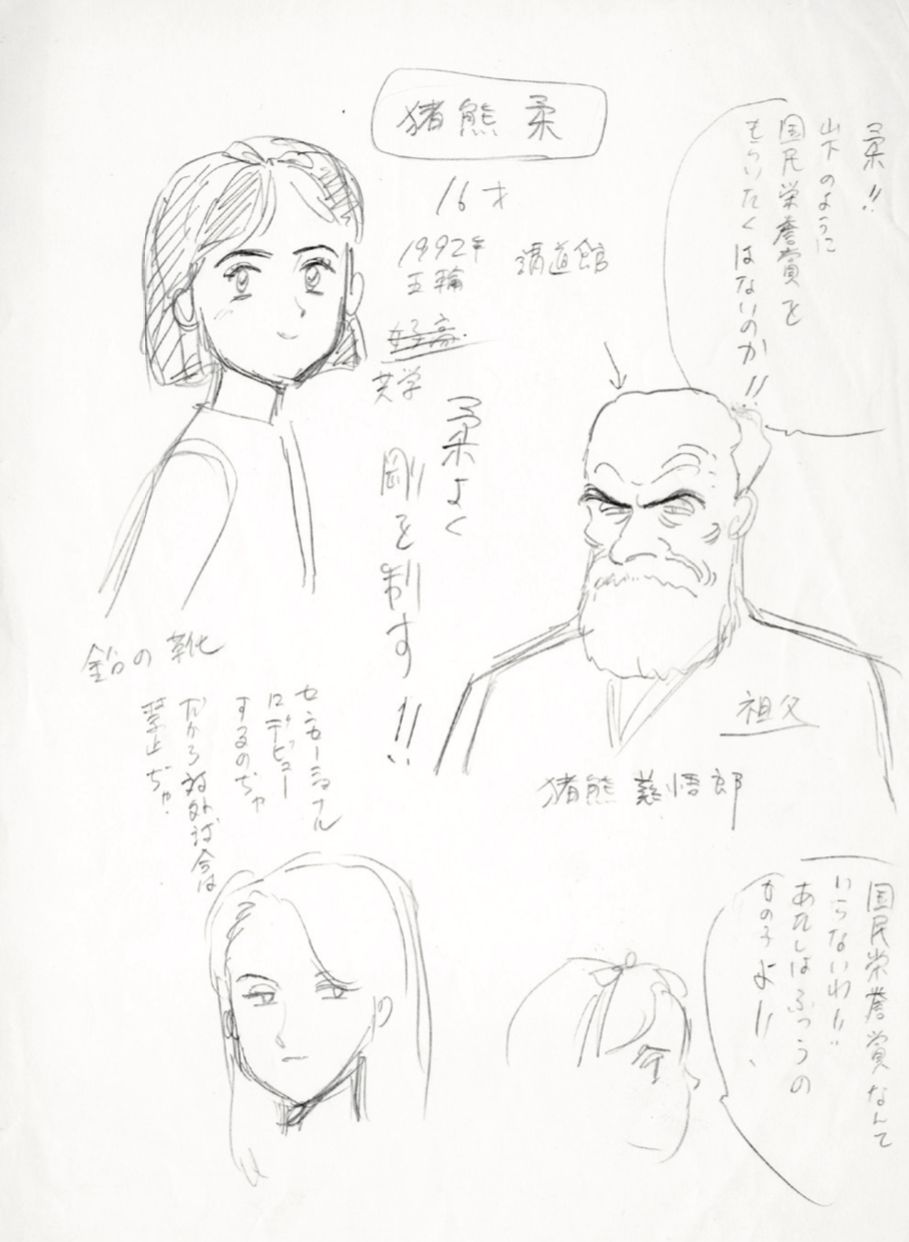 猪熊 柔
16才
1992年
五輪
講道館
女子高
共学
柔よく
剛を制す!!
柔!!
山下のように
国民栄誉賞を
もらいたくはないのか!!
鉛の靴
センセーショナル
にデビュー
するのぢゃ
だから対外試合は
禁止ぢゃ.
祖父
猪熊 慈悟郎
国民栄誉賞なんて
いらないわ!!
あたしはふつうの
女の子よ!!